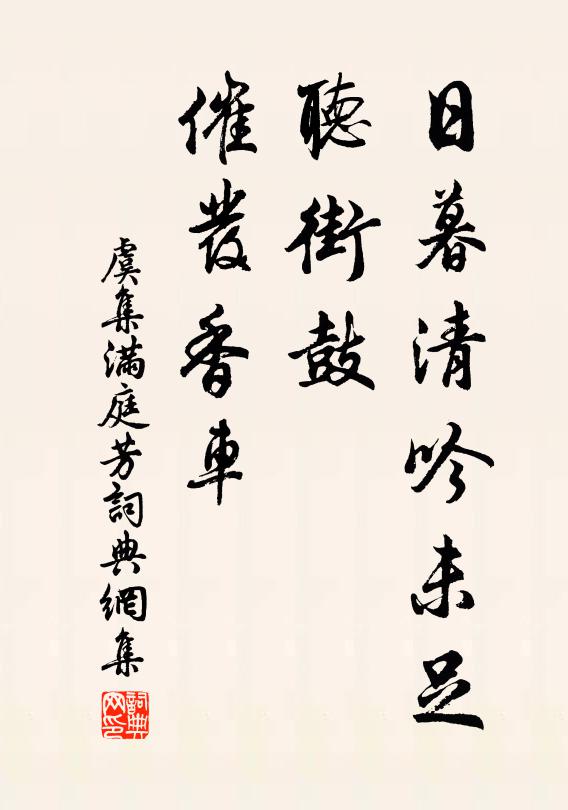 日暮清吟未足
聽街鼓
催發香車
虞集滿庭芳詞典網集
詞典网印